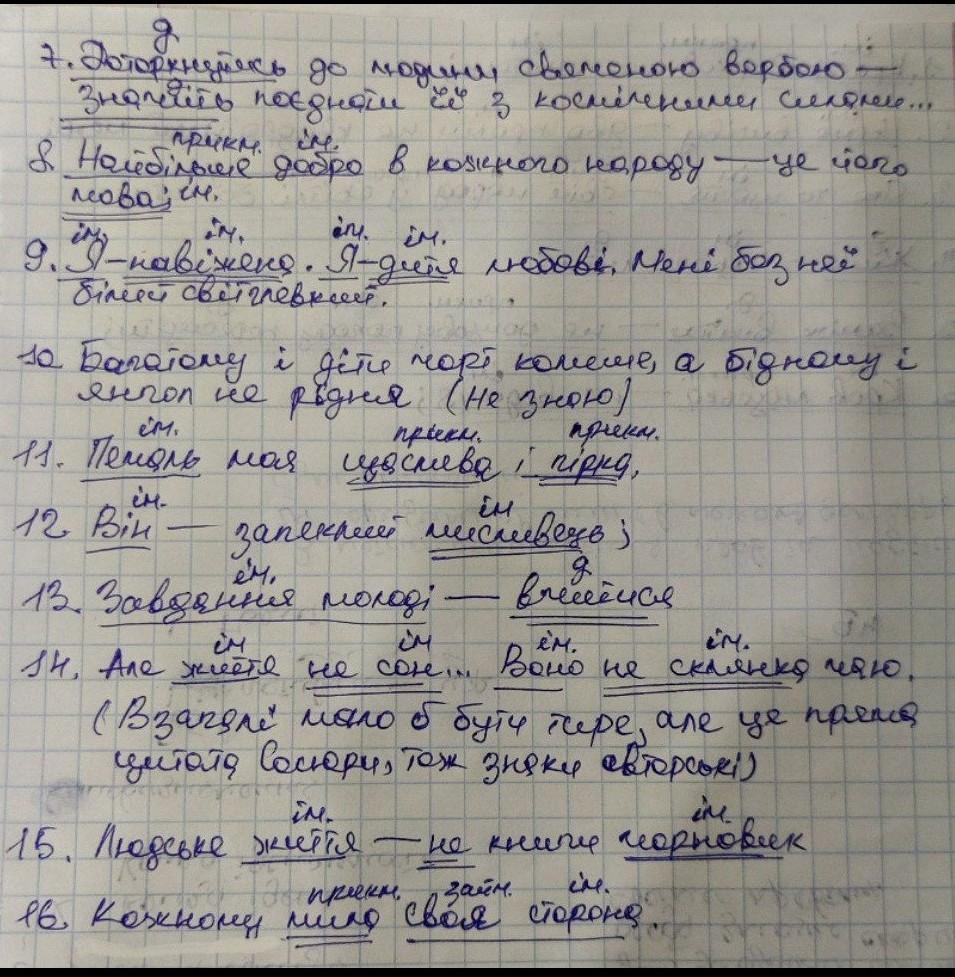 д
7. Доторкнутись до людини свяченою вербою —
д
значить поєднати її з космічними силами...
прикм. ім.
8. Найбільше добро в кожного народу — це його
мова; ім.
ім. ім. ім. ім.
9. Я — навіжена. Я — дитя любові. Мені без неї
білий світ глевкий.
10 Багатому і діти чорт колише, а бідному і
янгол не рідня (Не знаю)
ім. прикм. прикм.
11. Печаль моя щаслива і гірка,
ім. ім
12. Він — запеклий мисливець;
ім. д
13. Завдання молоді — вчитися
ім ім ім. ім.
14. Але життя не сон... Воно не склянка чаю.
(Взагалі мало б бути тире, але це пряма
цитата Сосюри, тож знаки авторські)
ім. ім.
15. Людське життя — не книги чорновик
прикм. займ. ім.
16. Кожному мила своя сторона.